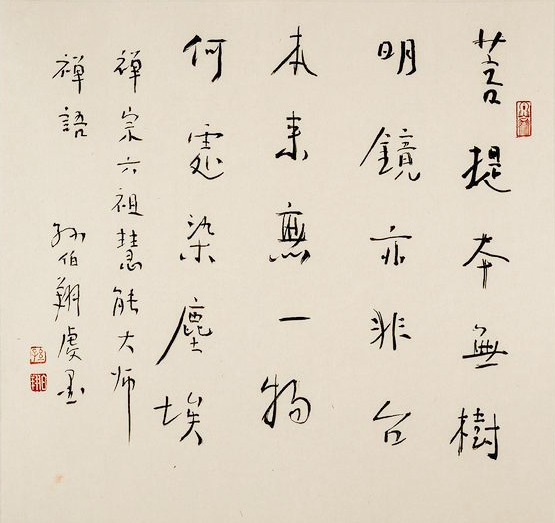 菩提本無樹
明鏡亦非台
本来無一物
何處染塵埃
禅宗六祖慧能大师
禅語 孙伯翔虔墨